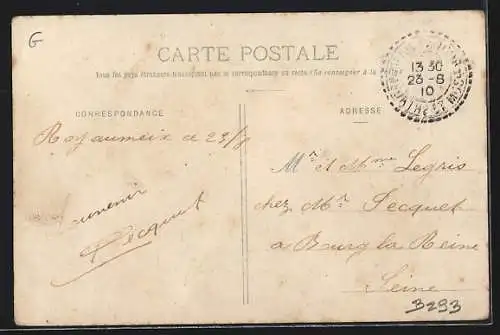 G
CARTE POSTALE
Tous les pays étrangers n'acceptent pas la correspondance au recto (Se renseigner à la
CORRESPONDANCE
ADRESSE
13 30
23-8
10
Royaumeix le 23/8
Souvenir
Pecquet
Mr et Mme Legris
chez Mr Pecquet
a Bourg la Reine
Seine
3293